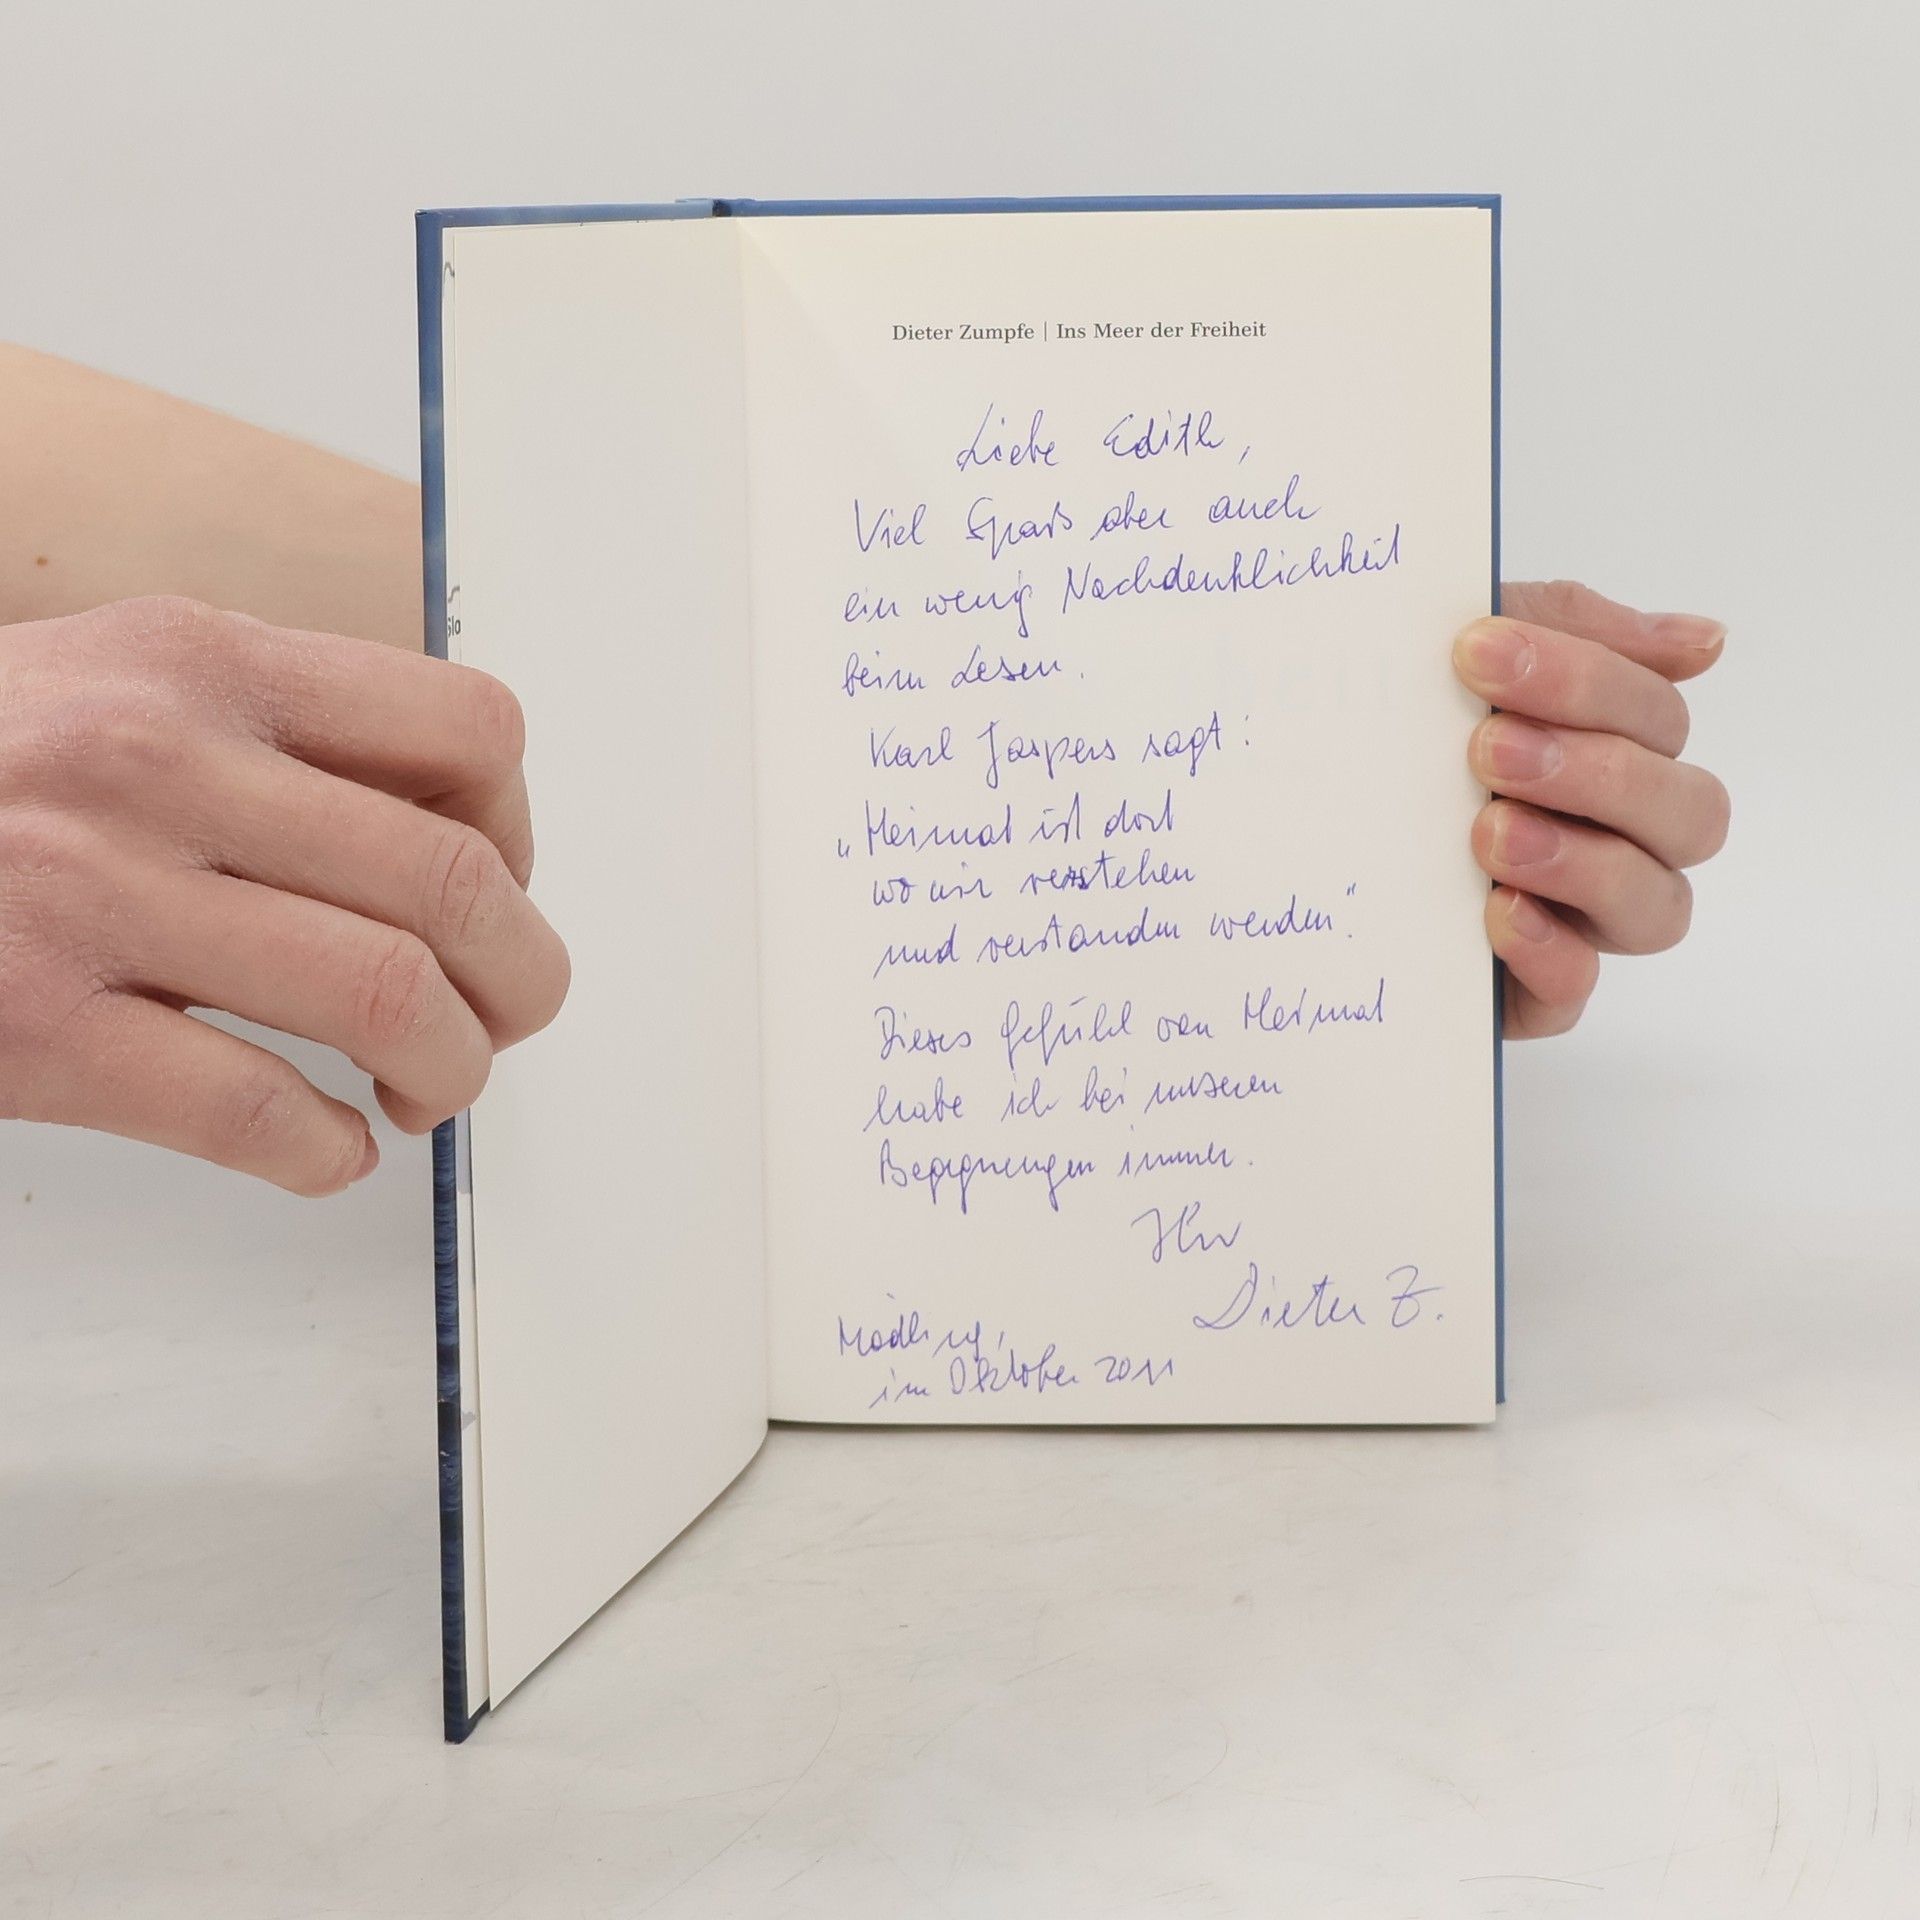 Slo
Dieter Zumpfe | Ins Meer der Freiheit
Liebe Edith,
Viel Spaß aber auch
ein wenig Nachdenklichkeit
beim Lesen.
Karl Jaspers sagt:
„Heimat ist dort
wo wir verstehen
und verstanden werden“.
Dieses Gefühl von Heimat
habe ich bei unseren
Begegnungen immer.
Ihr
Dieter Z.
Mödling,
im Oktober 2011